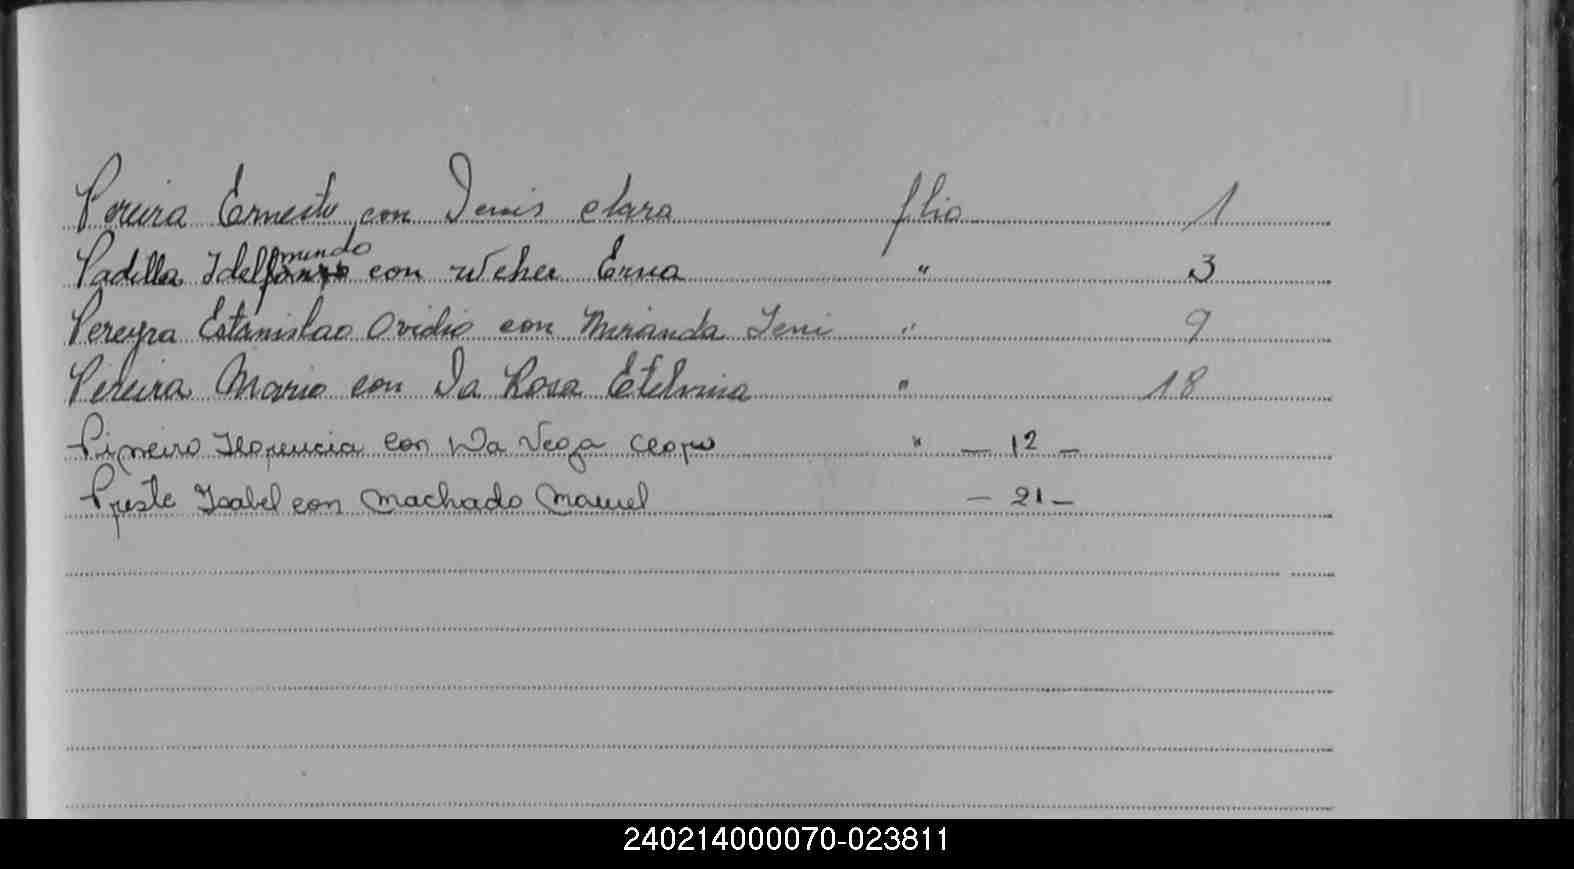 Pereira Ernesto con Denis clara flio 1
Padilla Idelfmundo con Weher Erna " 3
Pereyra Estanislao Ovidio con Miranda Ieni " 9
Pereira Mario con Da Rosa Etelvina " 18
Pineiro Florencia con Da Vega " - 12 -
Preste Isabel con Machado Manuel - 21 -
240214000070-023811